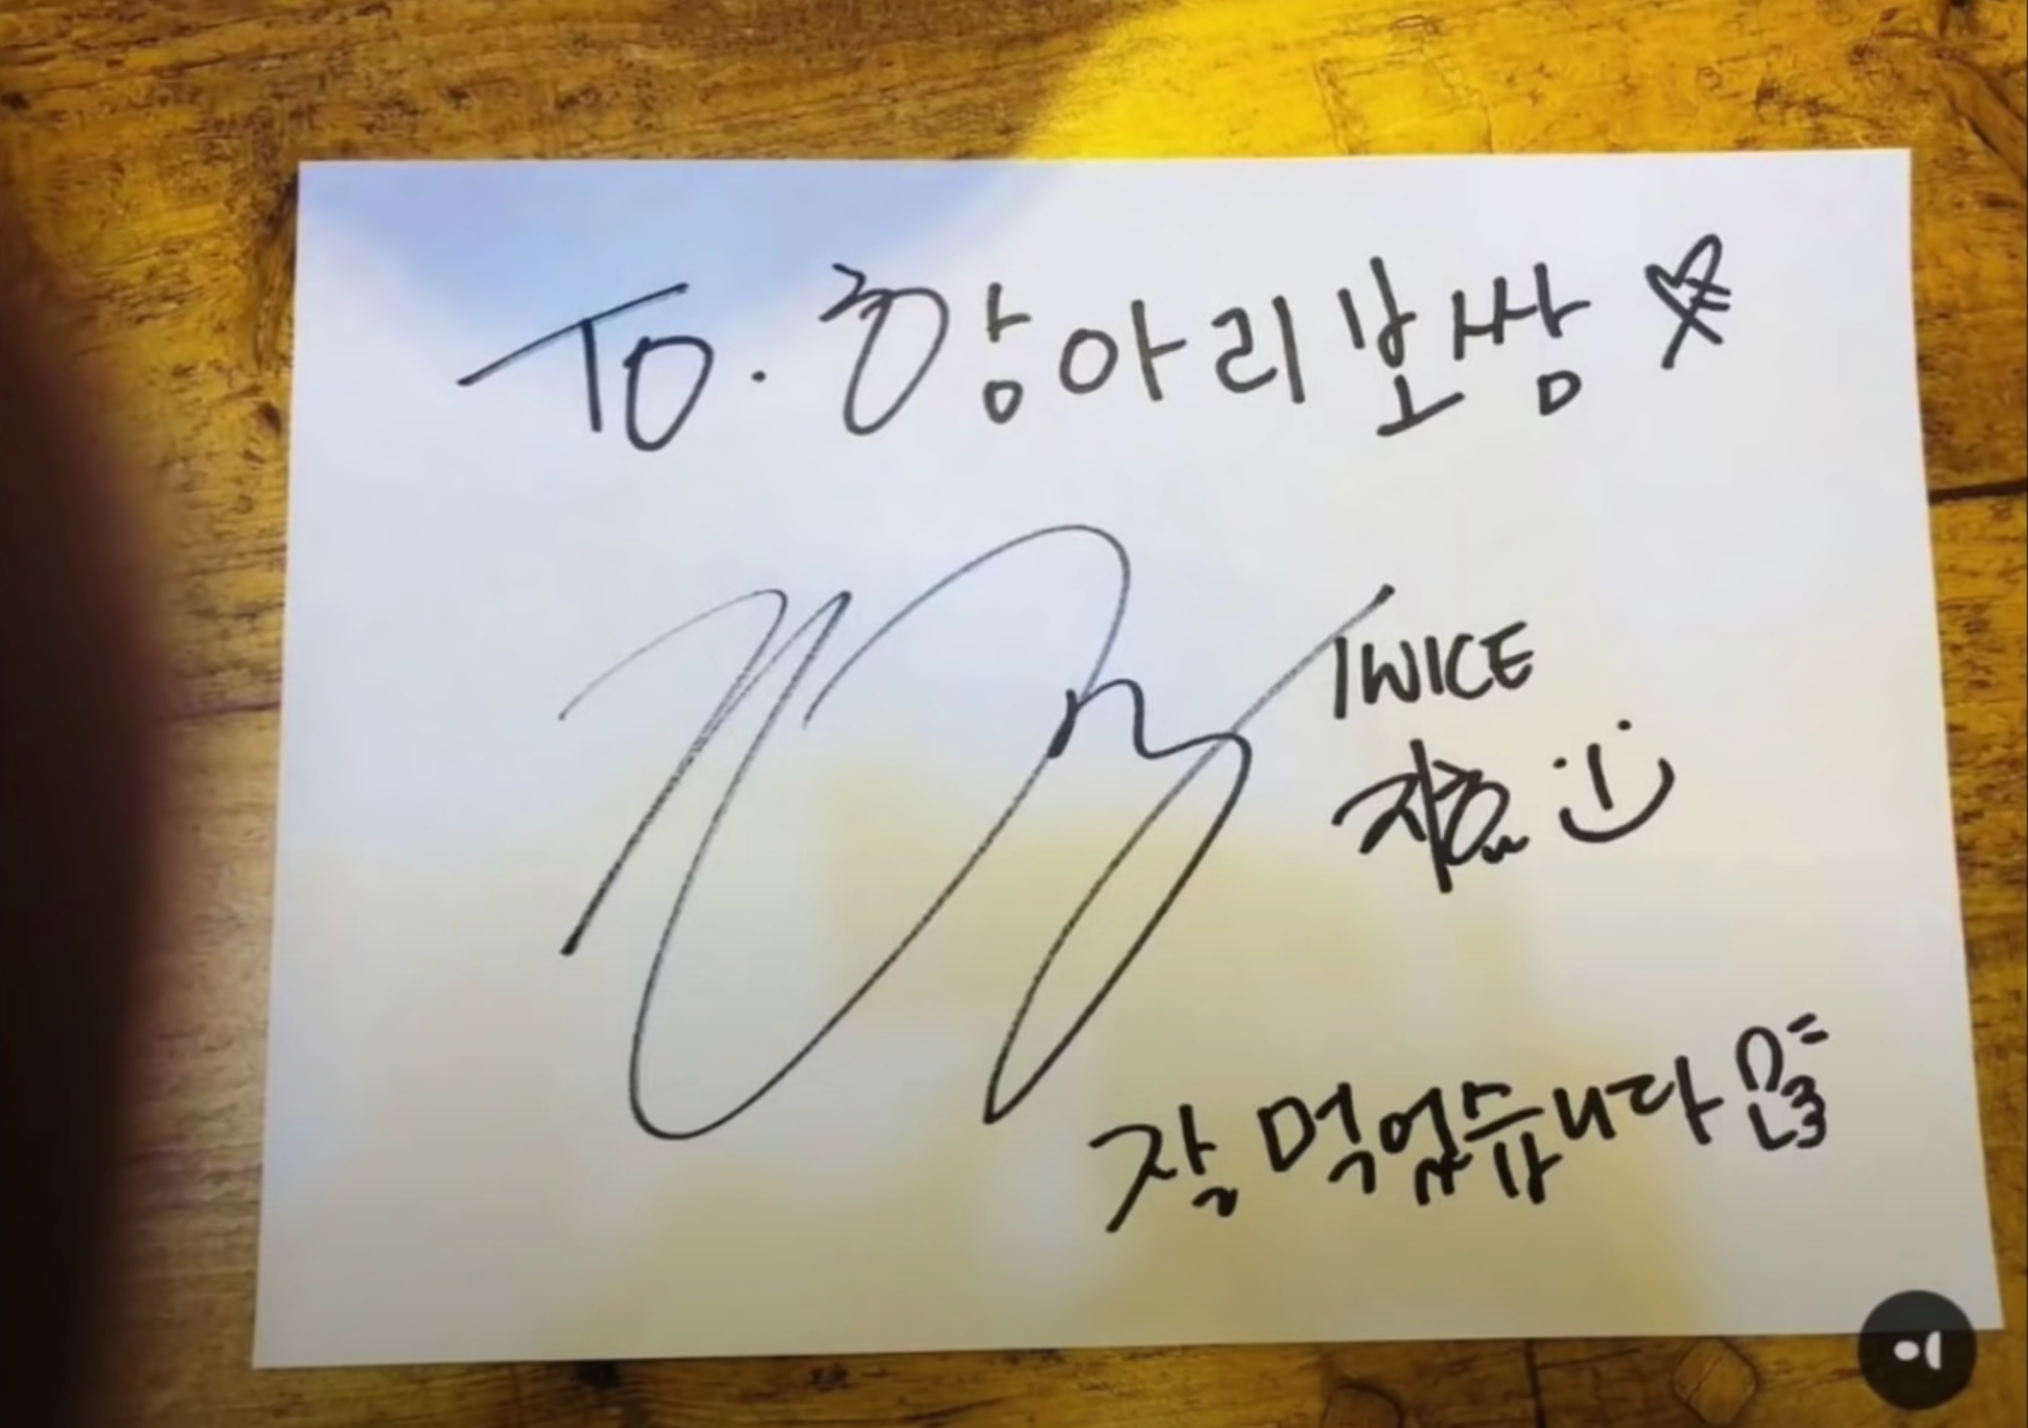 To. 항아리보쌈
TWICE
지효
잘 먹었습니다